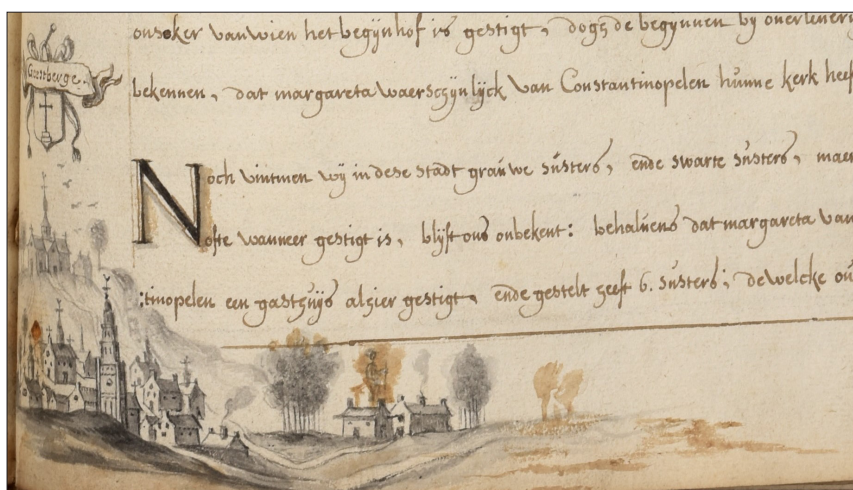 onseker van wien het begÿnhof is gestigt, dogs de begÿnnen by overlevery
Geertberge.
bekennen, dat margareta waerschÿnlÿck van Constantinopelen hunne kerk heef
Noch vintmen wÿ in dese stadt grauwe susters, ende swarte susters, maer
ofte wanneer gestigt is, blÿft ons onbekent: behalvens dat margareta van
:tinopelen een gasthuÿs alhier gestigt, ende gestelt heeft 6. susters; de welcke ou